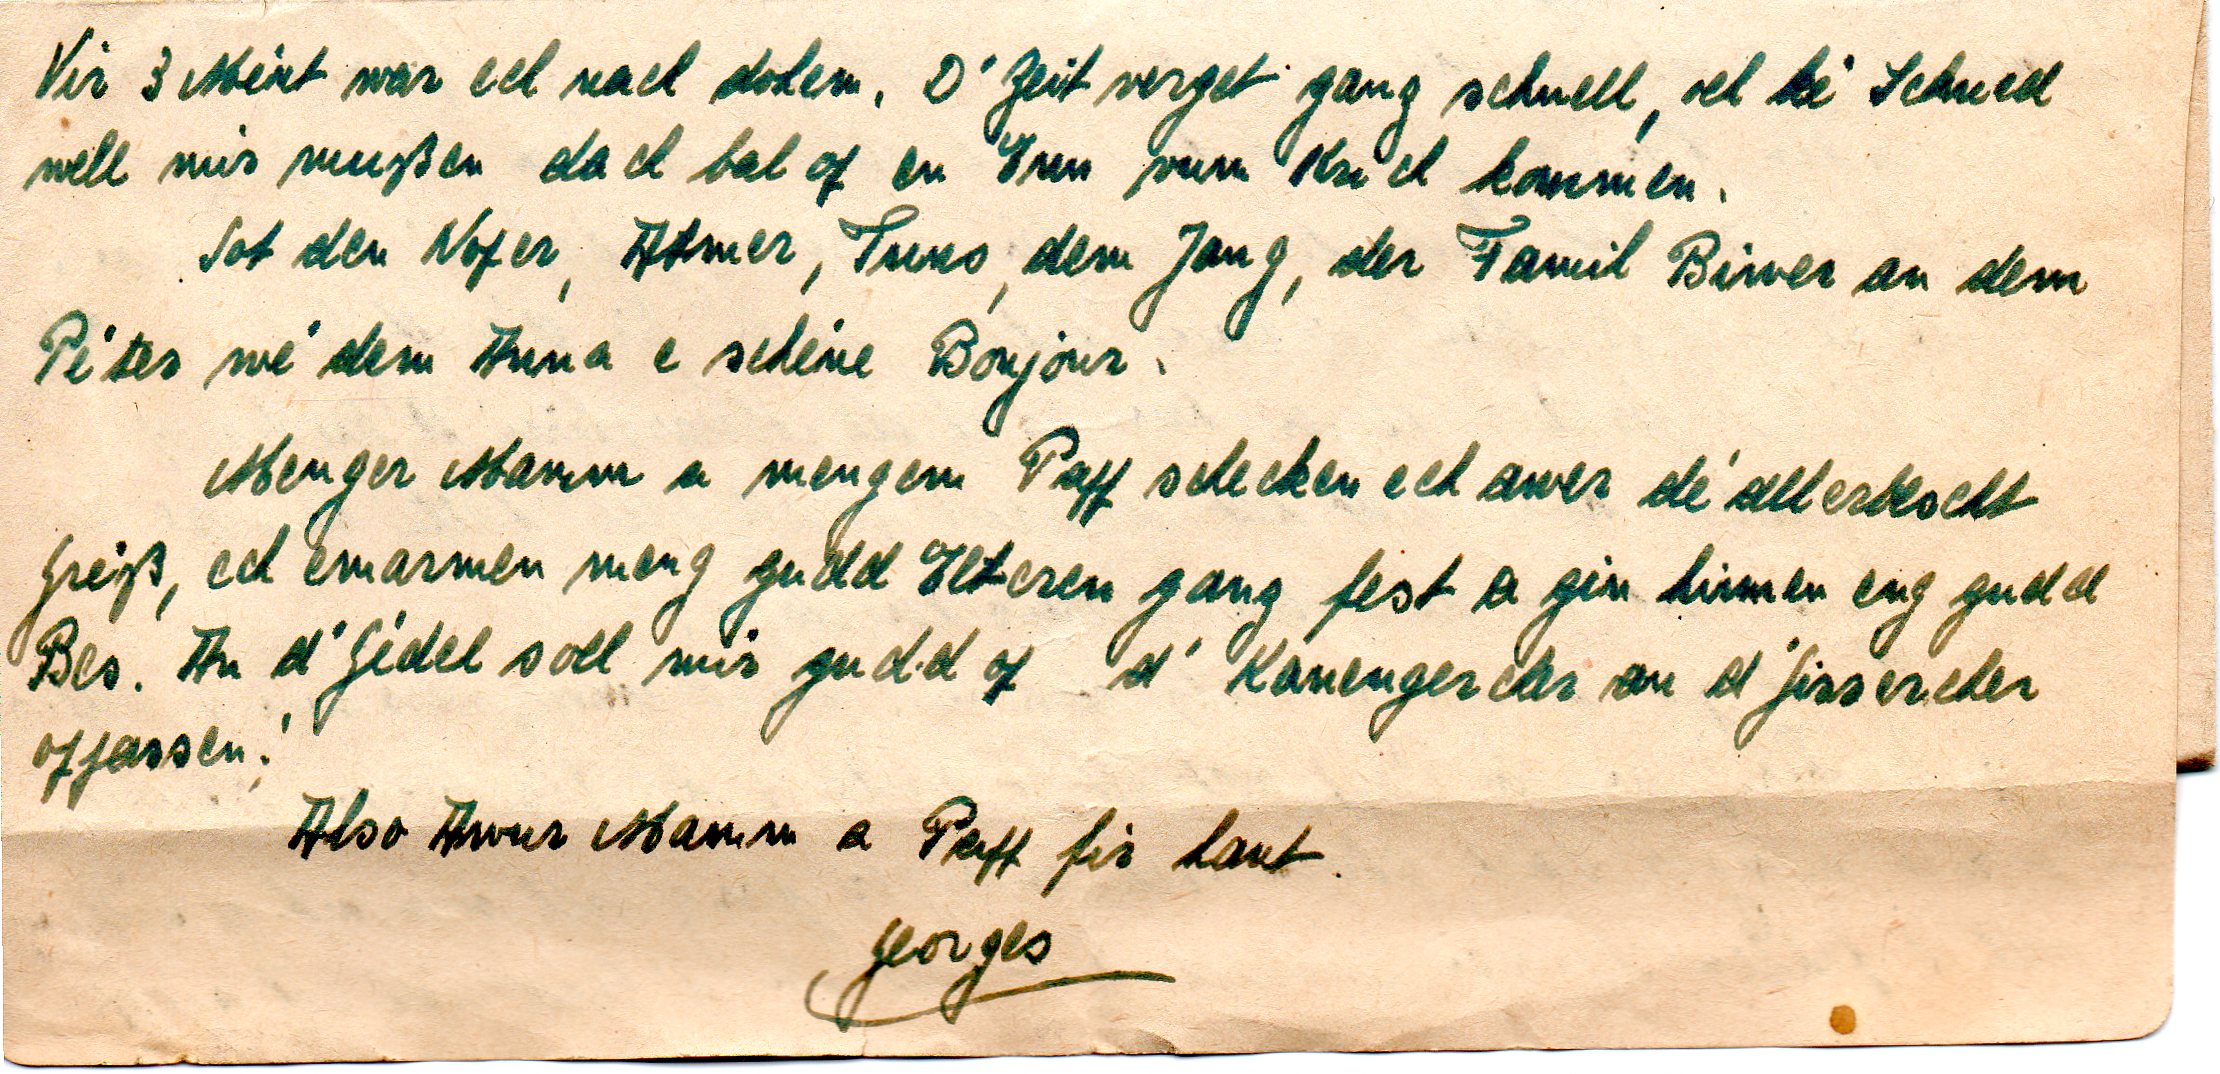 Vir 3 Méint war ech nach dohem. D'Zeit verget gang schnell, och ké Schued
well mir mußen dach bal of en Enn vum Krich kommen.
Sot den Nofer, Atmer, Tuns, dem Jang, der Famil Biwer an dem
Péter wé dem Anna e schéine Bonjour.
Menger Mamm a mengem Papp schecken ech awer dé allerbescht
Gréiß, ech emarmen meng gudd Elteren gang fest a gin hinnen eng gudd
Bes. An d'Gédel soll mir gudd of d'Kanengercher an d'Gissercher
opassen!
Also Awur Mamm a Papp fir haut.
Georges